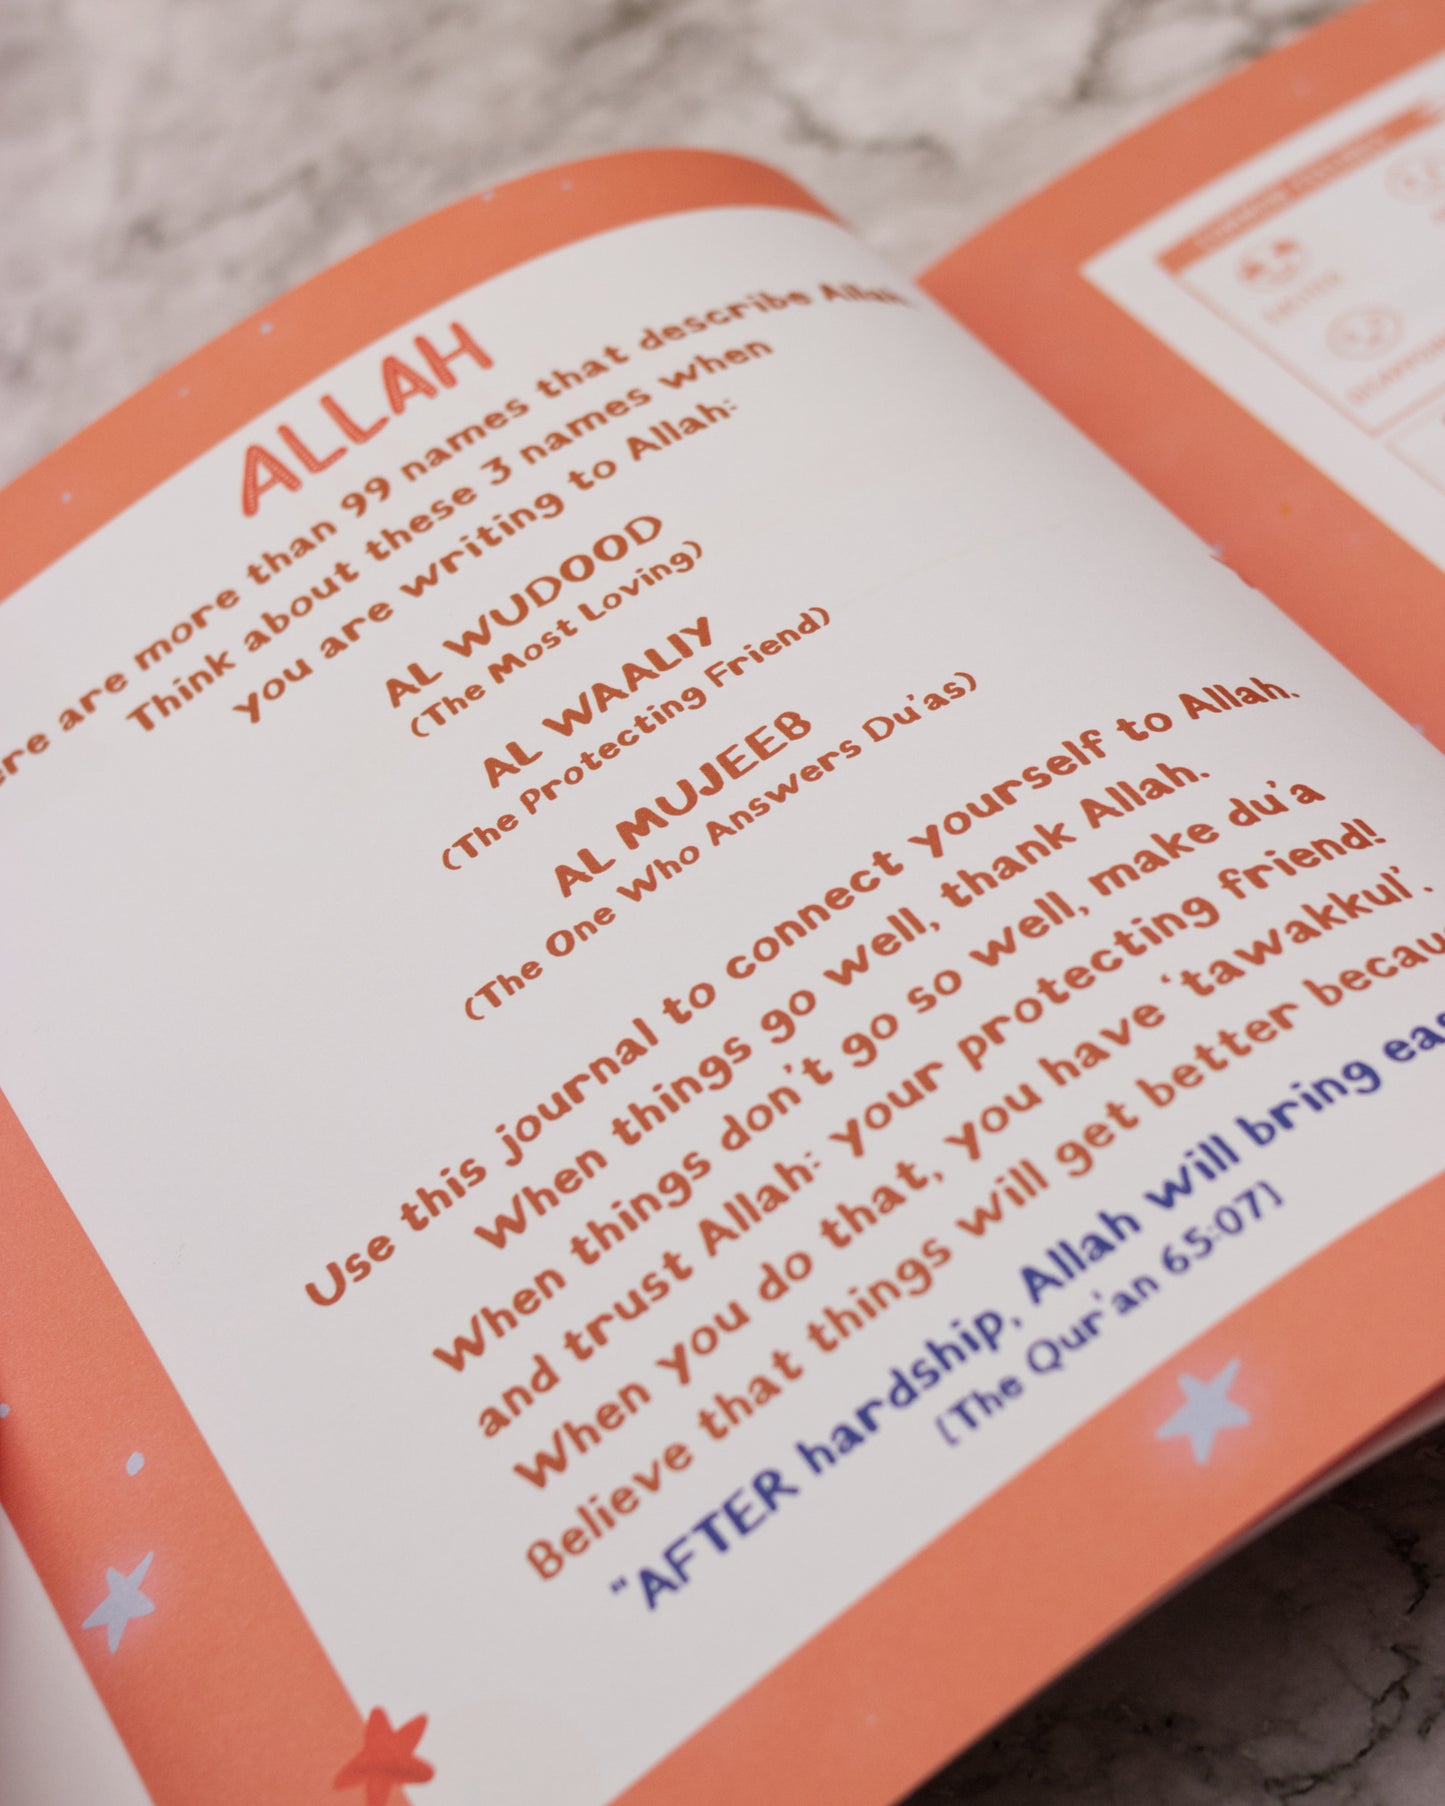 ALLAH
are more than 99 names that describe Allah.
Think about these 3 names when
you are writing to Allah:
AL WUDOOD
(The Most Loving)
AL WAALIY
(The Protecting Friend)
AL MUJEEB
(The One Who Answers Du'as)
Use this journal to connect yourself to Allah.
When things go well, thank Allah.
When things don't go so well, make du'a
and trust Allah: your protecting friend!
When you do that, you have 'tawakkul'.
Believe that things will get better
"AFTER hardship, Allah will bring
[The Qur'an 65:07]
COMMON FEELINGS
EXCITED